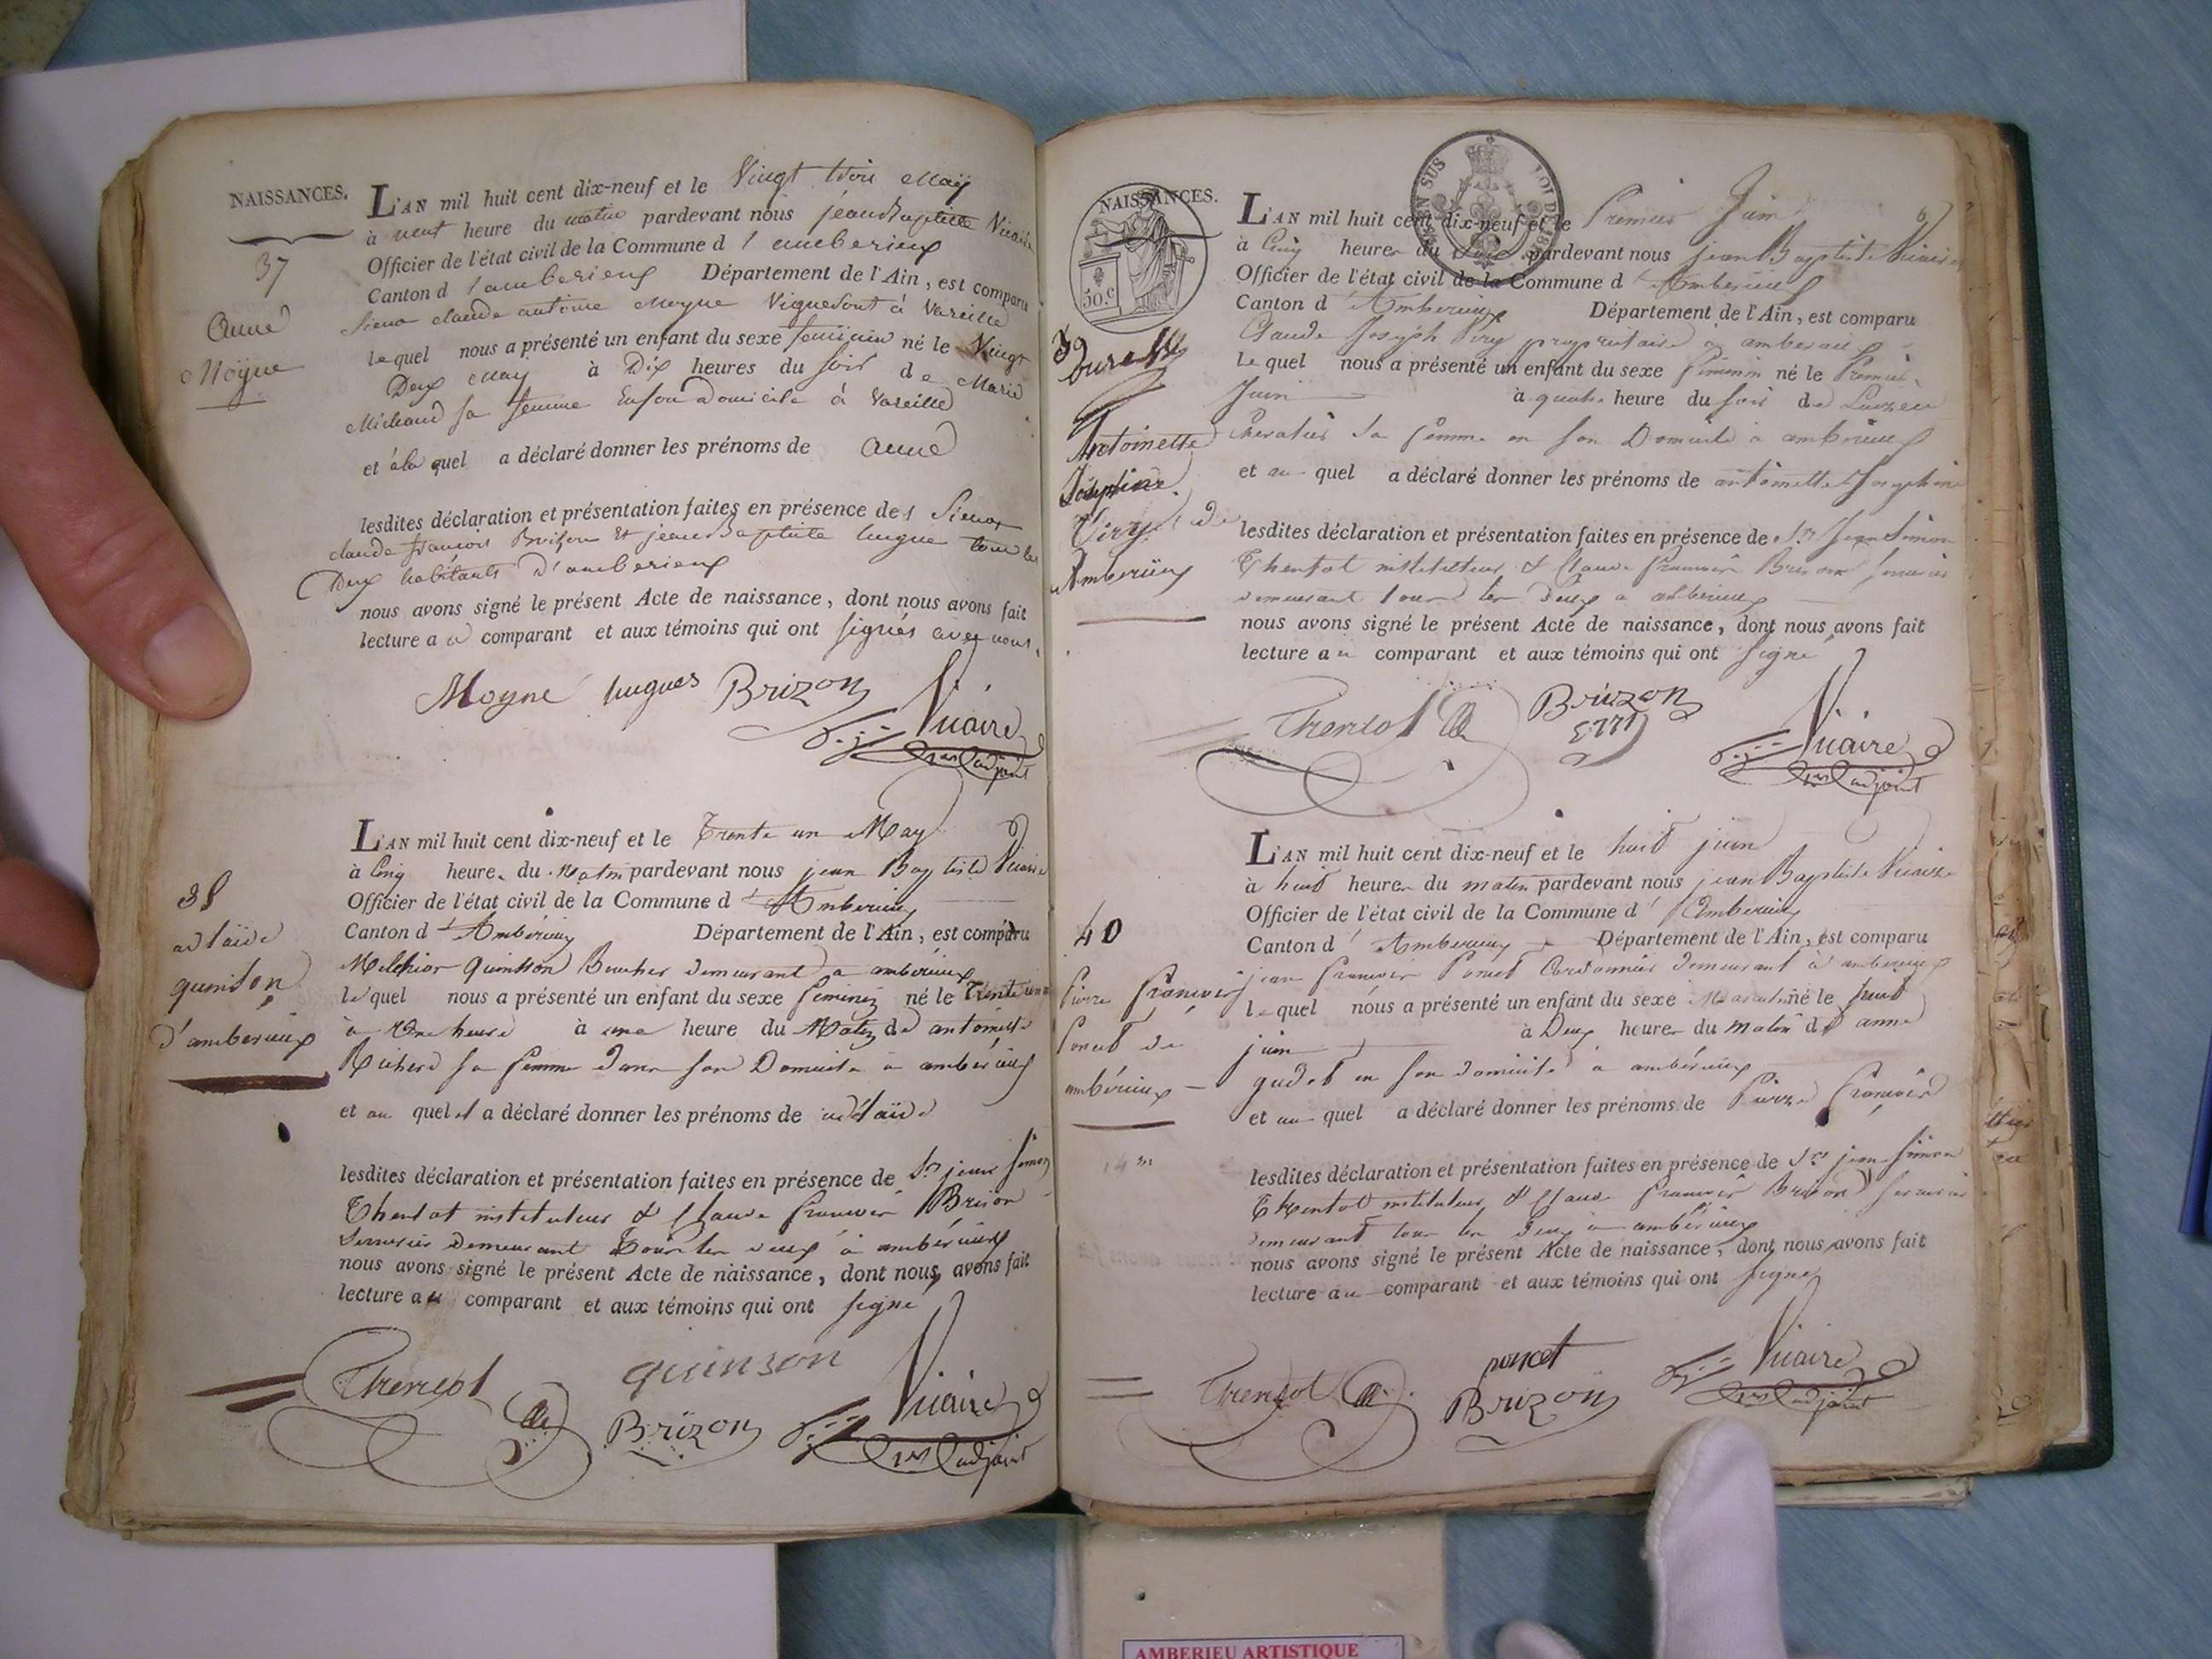 NAISSANCES.
37
Anne
Moÿne
L'AN mil huit cent dix-neuf et le Vingt trois May
à neuf heure du matin pardevant nous jean Baptiste Vicaire
Officier de l'état civil de la Commune d'amberieux
Canton d'amberieux Département de l'Ain, est comparu
Sieur claude antoine Moyne Vigneront à Vareille
lequel nous a présenté un enfant du sexe feminin né le Vingt
Deux May à Dix heures du soir de Marie
Michaud sa femme En son Domicile à Vareille
et à la quel a déclaré donner les prénoms de anne
lesdites déclaration et présentation faites en présence des Sieurs
claude francois Brizon Et jean Baptiste hugue tous les
Deux habitants d'amberieux
nous avons signé le présent Acte de naissance, dont nous avons fait
lecture au comparant et aux témoins qui ont signés avec nous.
Moyne hugues Brizon
Vicaire
adjoint
38
adlaïde
quinson
d'amberieux
L'AN mil huit cent dix-neuf et le Trente un May
à Cinq heures du Matin pardevant nous jean Baptiste Vicaire
Officier de l'état civil de la Commune d'Amberieux
Canton d'Amberieux Département de l'Ain, est comparu
Melchior quinsson demeurant a amberieux
lequel nous a présenté un enfant du sexe feminin né le Trente un
à Une heure à une heure du Matin de antoinette
Richerd sa femme dans son Domicile a amberieux
et au quel a déclaré donner les prénoms de adélaïde
lesdites déclaration et présentation faites en présence de Sr jean Simon
Thentot instituteur & Claude francois Brison
Serrurier demeurant Tous les deux a amberieux
nous avons signé le présent Acte de naissance, dont nous avons fait
lecture au comparant et aux témoins qui ont signé
quinson
Brizon
Vicaire
adjoint
EN SUS
NAISSANCES.
50.c
39
Antoinette
Joséphine
Viry de
Amberieux
L'AN mil huit cent dix-neuf et le Premier Juin
à Cinq heures du Soir pardevant nous jean Baptiste Vicaire
Officier de l'état civil de la Commune d'Amberieux
Canton d'Amberieux Département de l'Ain, est comparu
Claude Joseph Viry propriétaire a amberieux
Lequel nous a présenté un enfant du sexe feminin né le Premier
Juin à quatre heure du soir de
Chevalier sa femme en son Domicile a amberieux
et au quel a déclaré donner les prénoms de antoinette Josephine
lesdites déclaration et présentation faites en présence de Sr Jean Simon
Thentot instituteur & Claude francois Brison serrurier
demeurant tous les Deux a amberieux
nous avons signé le présent Acte de naissance, dont nous avons fait
lecture au comparant et aux témoins qui ont signé
Brizon
Vicaire
adjoint
40
pierre francois
Poncet de
ambérieux
L'AN mil huit cent dix-neuf et le huit juin
à huit heures du matin pardevant nous jean Baptiste Vicaire
Officier de l'état civil de la Commune d'Amberieux
Canton d'Amberieux Département de l'Ain, est comparu
jean francois Poncet Cordonnier demeurant à amberieux
lequel nous a présenté un enfant du sexe Masculin né le huit
juin à Deux heures du matin de anne
gudet en son domicile a ambérieux
et au quel a déclaré donner les prénoms de Pierre francois
lesdites déclaration et présentation faites en présence de Sr jean Simon
Thentot instituteur & Claude francois Brison serrurier
demeurant tous les deux a ambérieux
nous avons signé le présent Acte de naissance, dont nous avons fait
lecture au comparant et aux témoins qui ont signé
poncet
Brizon
Vicaire
adjoint
AMBERIEU ARTISTIQUE